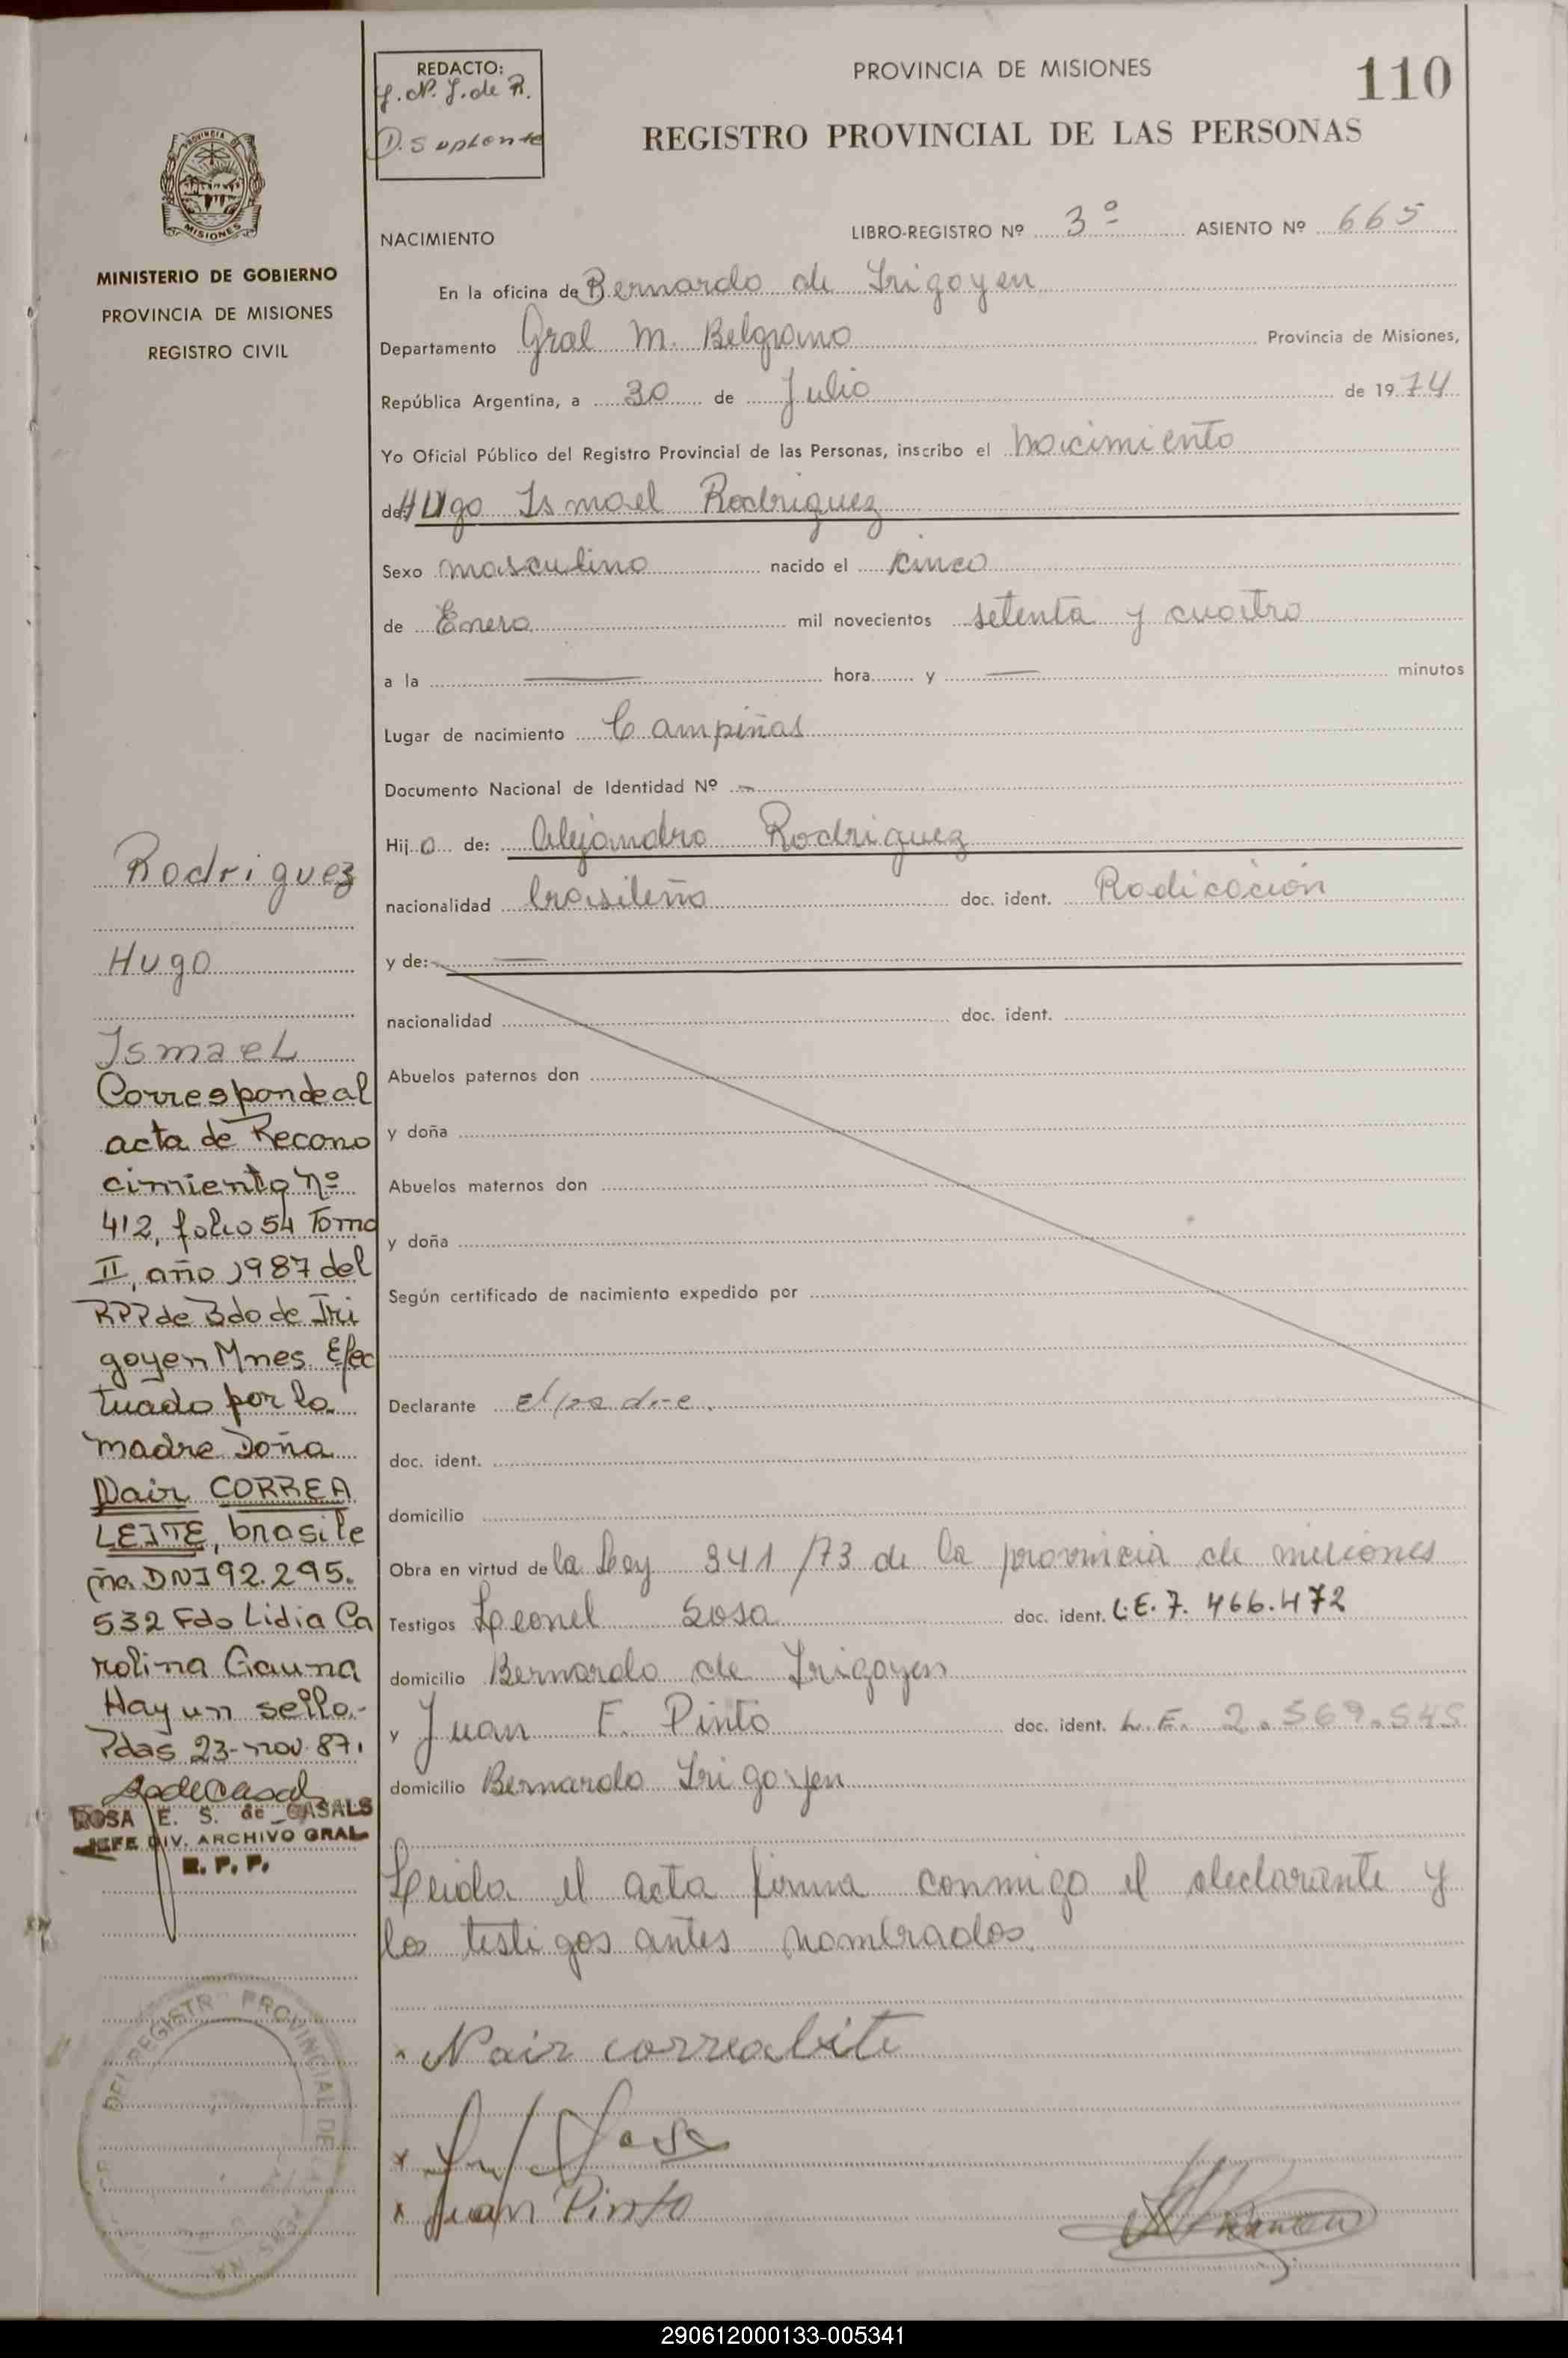 REDACTO:
D. Suplente
PROVINCIA DE MISIONES
110
REGISTRO PROVINCIAL DE LAS PERSONAS
PROVINCIA
MISIONES
MINISTERIO DE GOBIERNO
PROVINCIA DE MISIONES
REGISTRO CIVIL
NACIMIENTO LIBRO-REGISTRO Nº 3º ASIENTO Nº 665
En la oficina de Bernardo de Irigoyen
Departamento Gral M. Belgrano Provincia de Misiones,
República Argentina, a 30 de Julio de 1974
Yo Oficial Público del Registro Provincial de las Personas, inscribo el Nacimiento
de: Hugo Ismael Rodriguez
Sexo masculino nacido el cinco
de Enero mil novecientos setenta y cuatro
a la — hora y — minutos
Lugar de nacimiento Campiñas
Documento Nacional de Identidad Nº —
Hijo de: Alejandro Rodriguez
nacionalidad brasileño doc. ident. Radicación
y de: —
nacionalidad doc. ident.
Abuelos paternos don
y doña
Abuelos maternos don
y doña
Según certificado de nacimiento expedido por
Declarante El padre.
doc. ident.
domicilio
Obra en virtud de la Ley 341/73 de la provincia de misiones
Testigos Leonel Sosa doc. ident. L.E. 7.466.472
domicilio Bernardo de Irigoyen
y Juan F. Pinto doc. ident. L.E. 2.569.545
domicilio Bernardo Irigoyen
Leida el acta firma conmigo el declarante y
los testigos antes nombrados.
Nair correa leite
Sosa
Juan Pinto
Rodriguez
Hugo
Ismael
Corresponde al
acta de Recono
cimiento Nº
412, folio 54 Tomo
II, año 1987 del
RPP de Bdo de Iri
goyen Mnes. Efec
tuado por la
madre Doña
Nair CORREA
LEITE, brasile
ña DNI 92.295.
532 Fdo Lidia Ca
rolina Gauna
Hay un sello.-
Pdas 23-nov. 87.
ROSA E. S. de CASALS
JEFE DIV. ARCHIVO GRAL
R. P. P.
DEL REGISTR PROVINCIAL DE LA
290612000133-005341